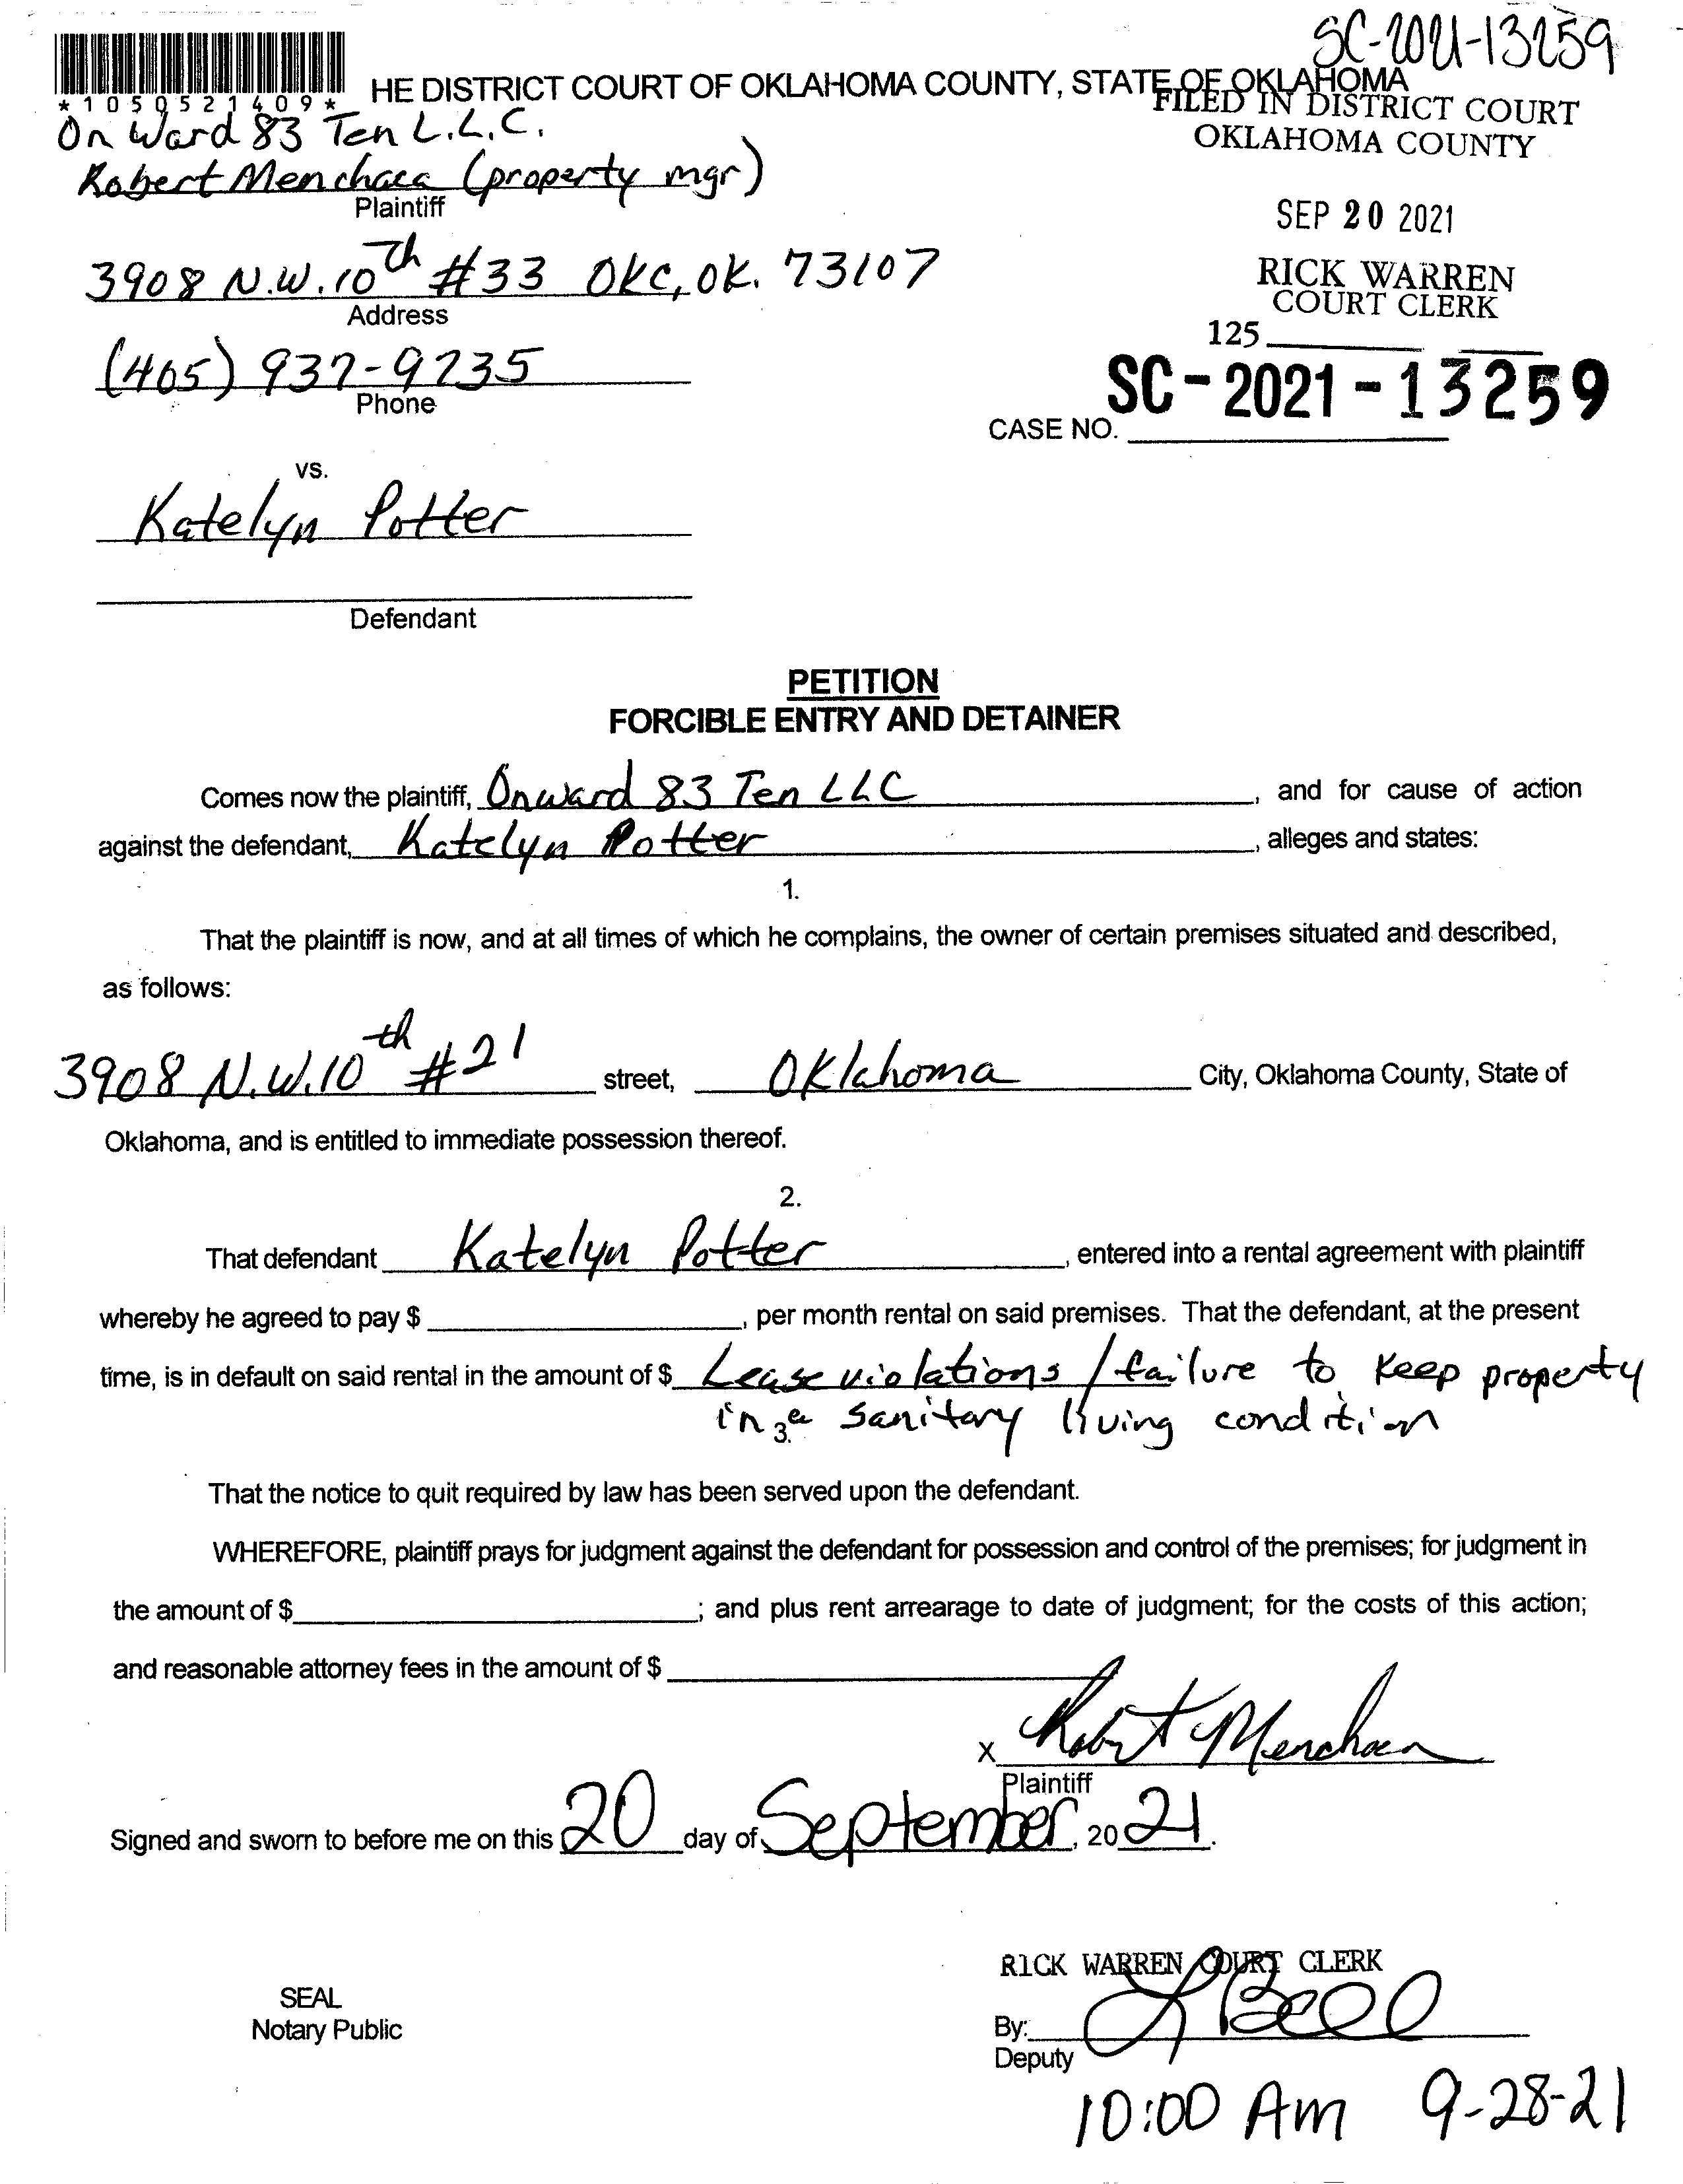 SC-2021-13259
*1050521409*
HE DISTRICT COURT OF OKLAHOMA COUNTY, STATE OF OKLAHOMA
FILED IN DISTRICT COURT
OKLAHOMA COUNTY
On Ward 83 Ten L.L.C.
Robert Menchaca (property mgr)
Plaintiff
SEP 20 2021
3908 N.W. 10th #33 OKC, OK. 73107
Address
RICK WARREN
COURT CLERK
125
(405) 937-9235
Phone
SC-2021-13259
CASE NO.
vs.
Katelyn Potter
Defendant
PETITION
FORCIBLE ENTRY AND DETAINER
Comes now the plaintiff, Onward 83 Ten LLC, and for cause of action
against the defendant, Katelyn Potter, alleges and states:
1.
That the plaintiff is now, and at all times of which he complains, the owner of certain premises situated and described,
as follows:
3908 N.W. 10th #21 street, Oklahoma City, Oklahoma County, State of
Oklahoma, and is entitled to immediate possession thereof.
2.
That defendant Katelyn Potter, entered into a rental agreement with plaintiff
whereby he agreed to pay $, per month rental on said premises. That the defendant, at the present
time, is in default on said rental in the amount of $ Lease violations / failure to keep property
in a sanitary living condition
3.
That the notice to quit required by law has been served upon the defendant.
WHEREFORE, plaintiff prays for judgment against the defendant for possession and control of the premises; for judgment in
the amount of $; and plus rent arrearage to date of judgment; for the costs of this action;
and reasonable attorney fees in the amount of $
x Robert Menchaca
Plaintiff
Signed and sworn to before me on this 20 day of September, 2021.
RICK WARREN COURT CLERK
SEAL
Notary Public
By: L Bell
Deputy
10:00 Am 9-28-21